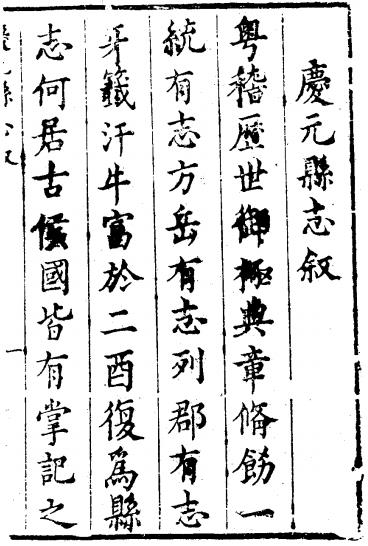 慶元縣志叙
粤稽歷世御極典章脩飭一
統有志方岳有志列郡有志
牙籤汗牛富於二酉復爲縣
志何居古侯國皆有掌記之
一